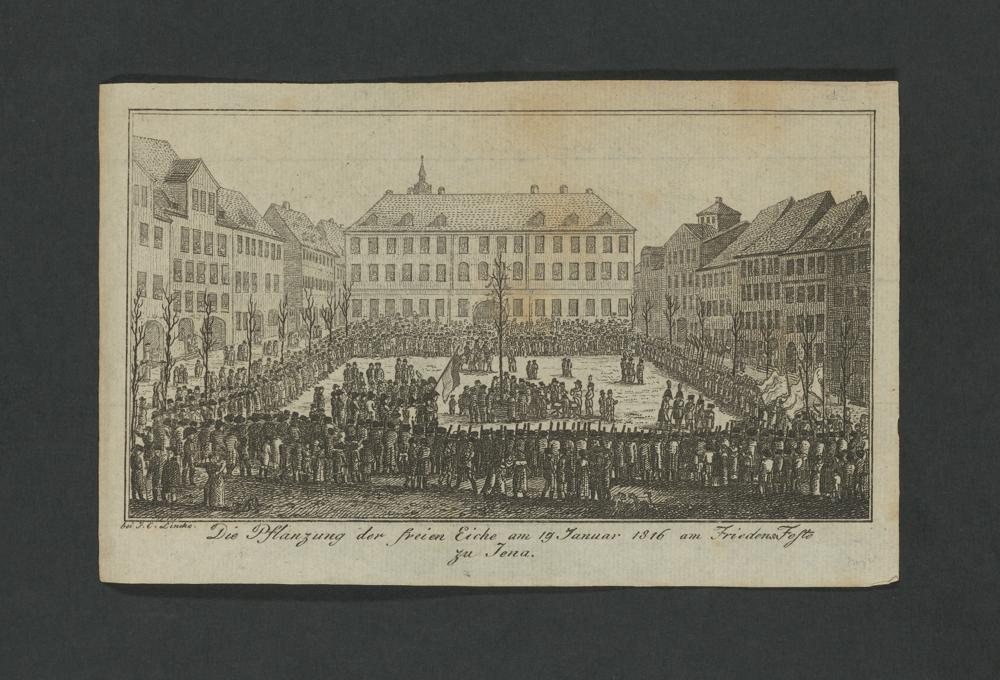 bei J. C. Lincke.
Die Pflanzung der freien Eiche am 19 Januar 1816 am Friedens Feste
zu Jena.